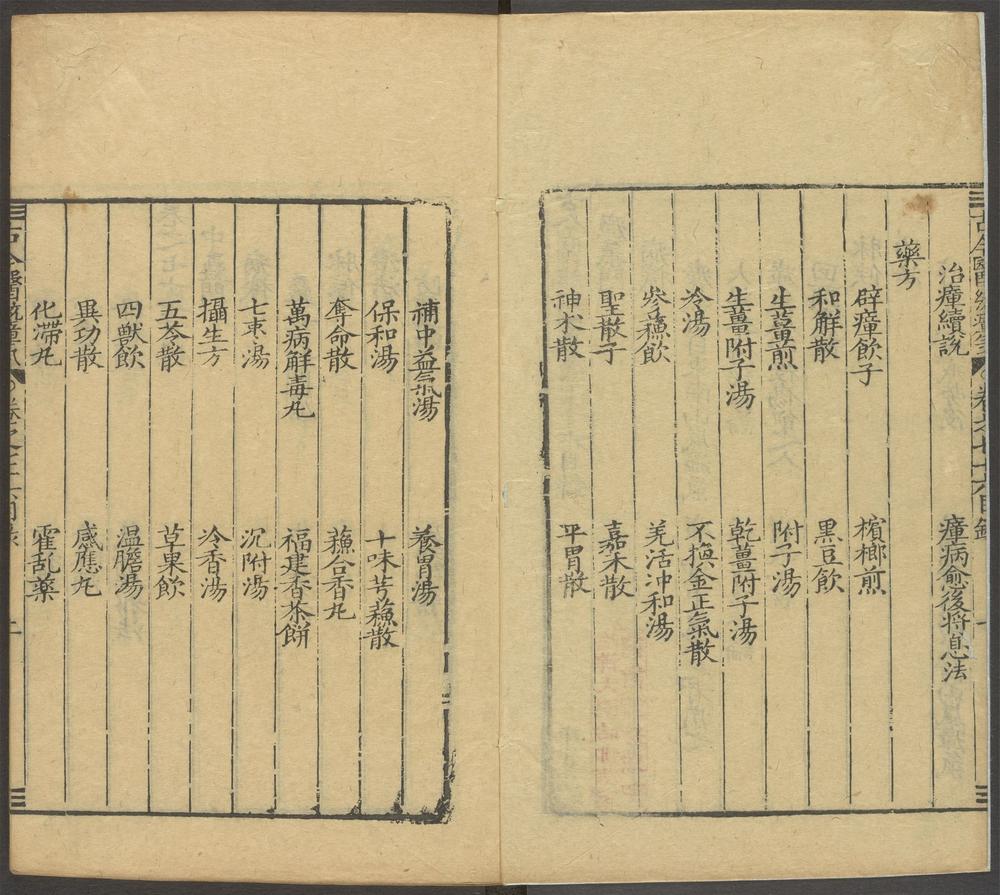 治瘴續說　瘴病愈後將息法
藥方
辟瘴飲子　檳榔煎
和解散　黑豆飲
生薑煎　附子湯
生薑附子湯　乾薑附子湯
冷湯　不換金正氣散
參蘓飲　羌活冲和湯
聖散子　嘉禾散
神朮散　平胃散
補中益氣湯　養胃湯
保和湯　十味芎蘓散
奪命散　蘓合香丸
萬病解毒丸　福建香茶餅
七棗湯　沉附湯
攝生方　冷香湯
五苓散　草果飲
四獸飲　温膽湯
異功散　感應丸
化滯丸　霍乱藥
二